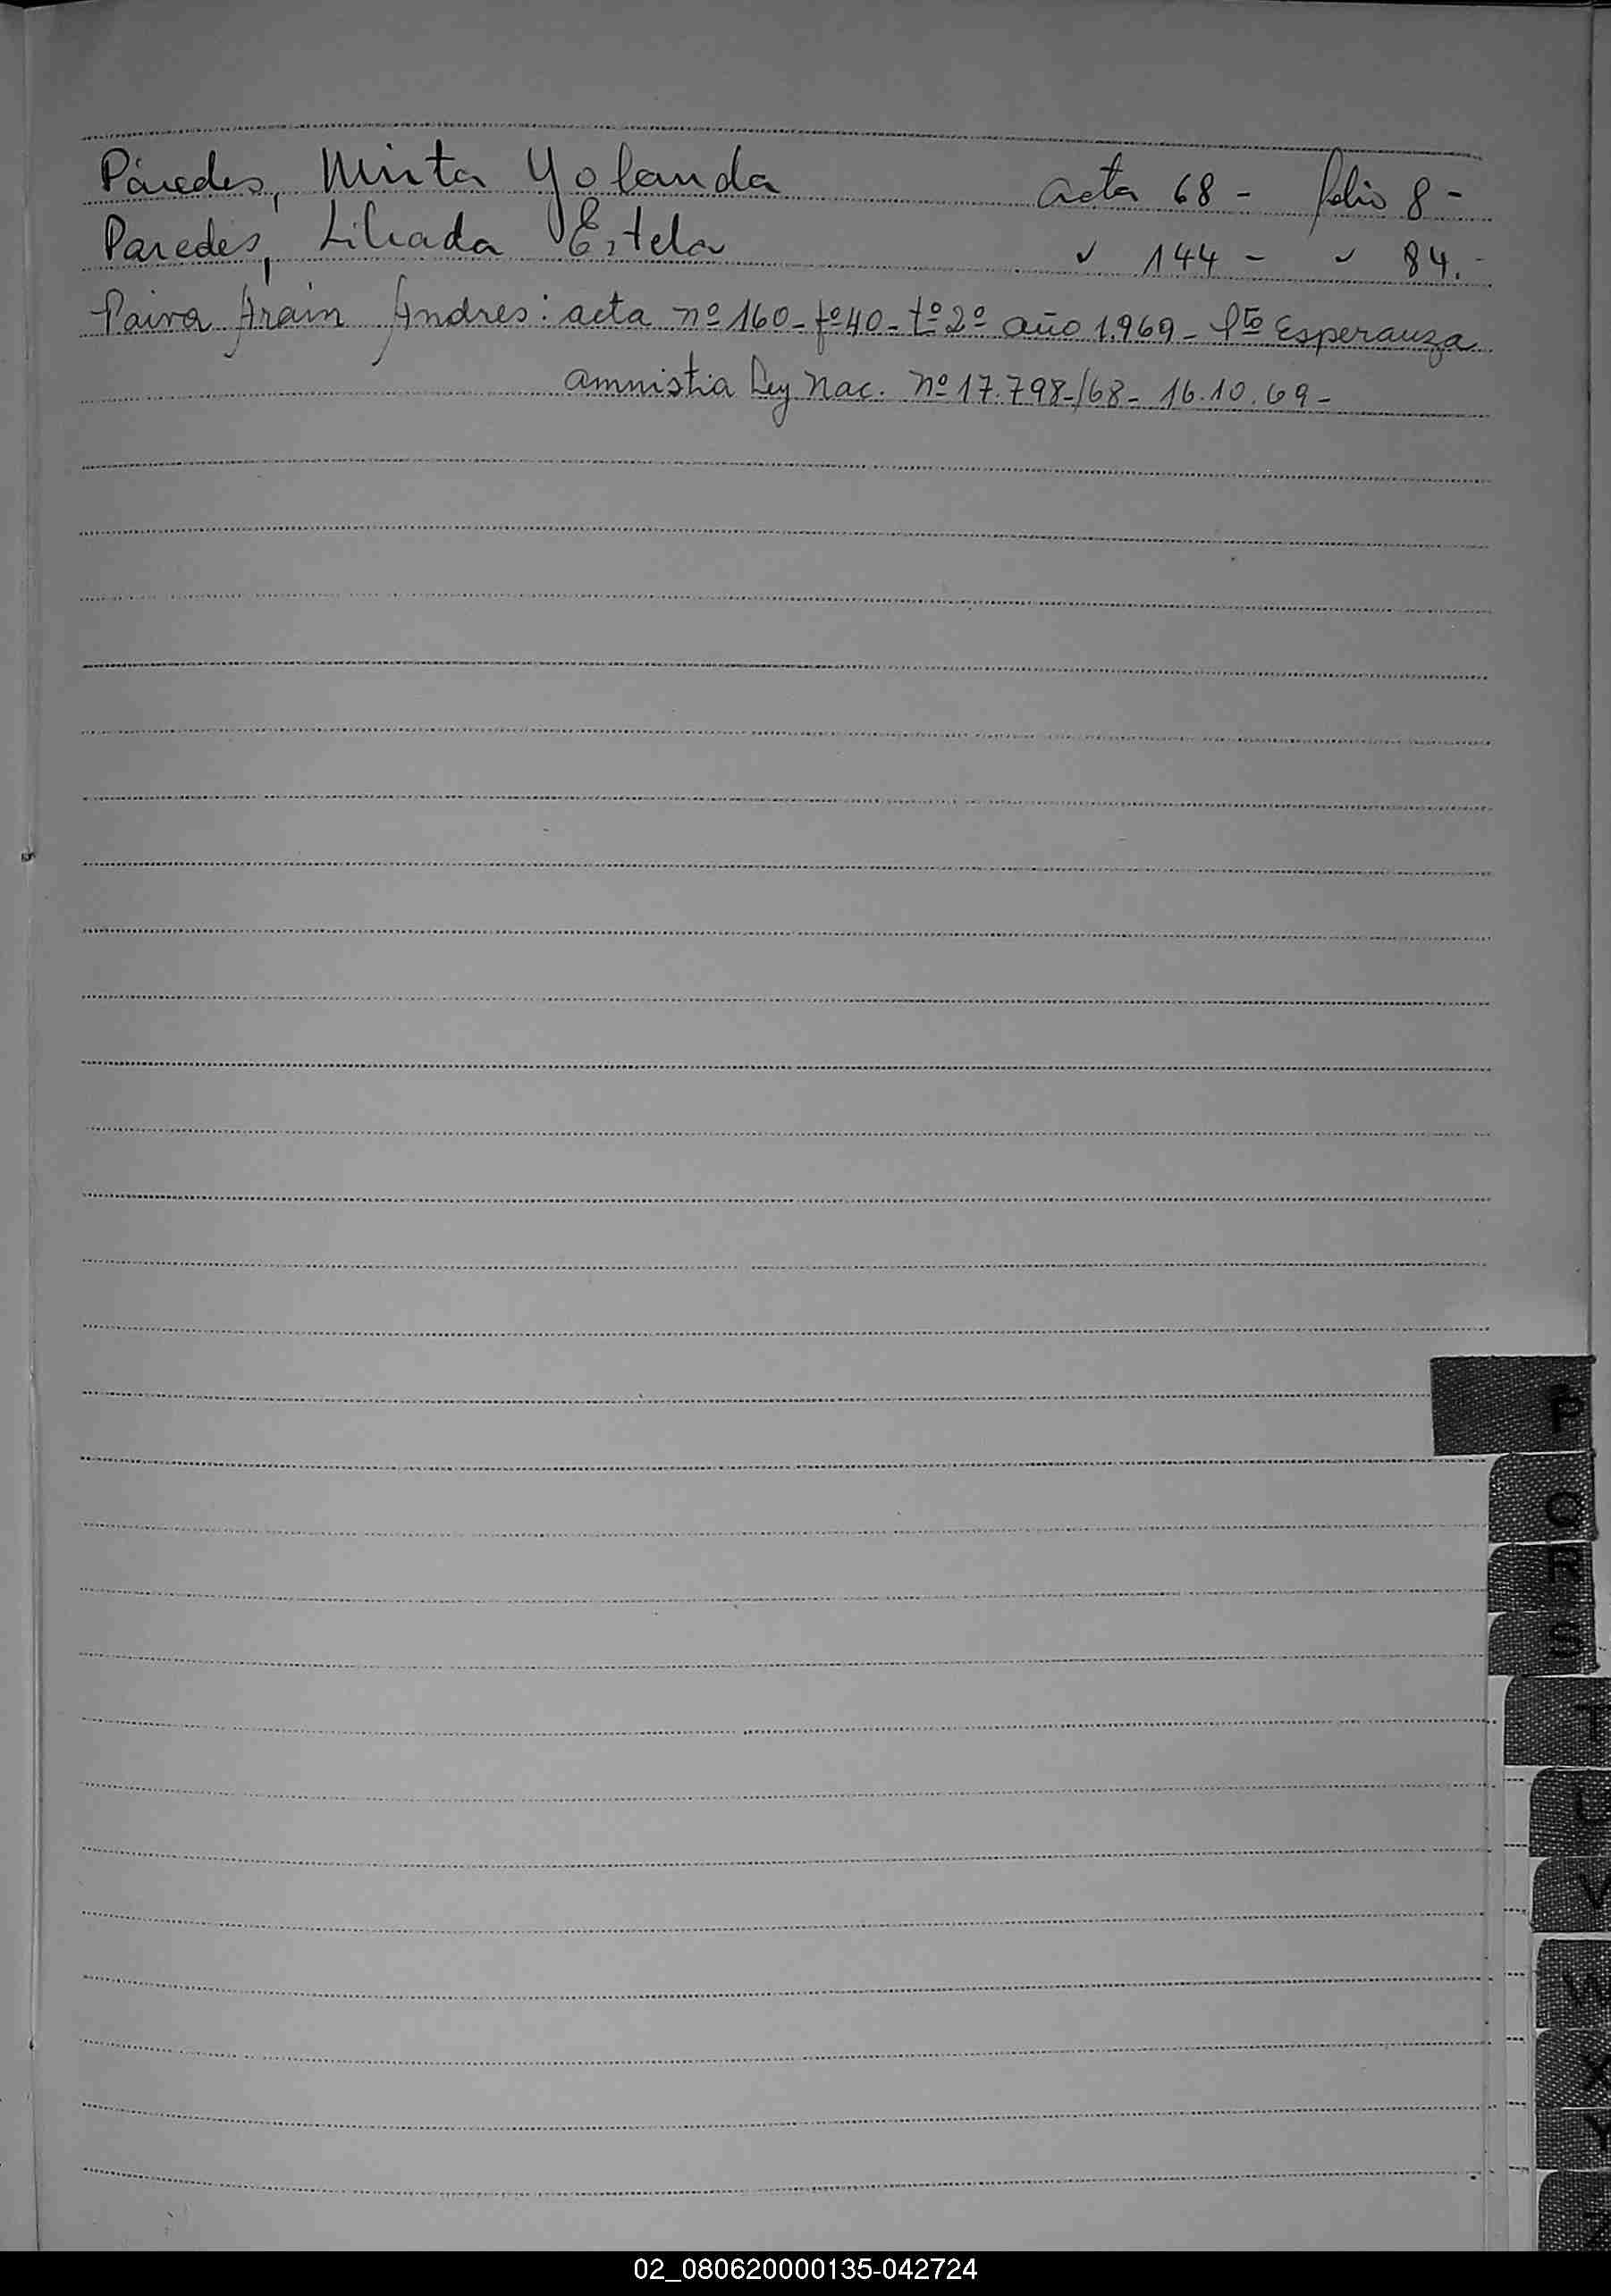 Páredes, Mirta Yolanda acta 68 - folio 8 -
Paredes, Liliada Estela " 144 - " 84.-
Paiva Arain Andres: acta nº 160 - fº 40 - tº 2º año 1.969 - Pto Esperanza
amnistia Ley Nac. Nº 17.798-/68 - 16.10.69 -
P
Q
R
S
T
U
V
W
X
Y
Z
02_080620000135-042724